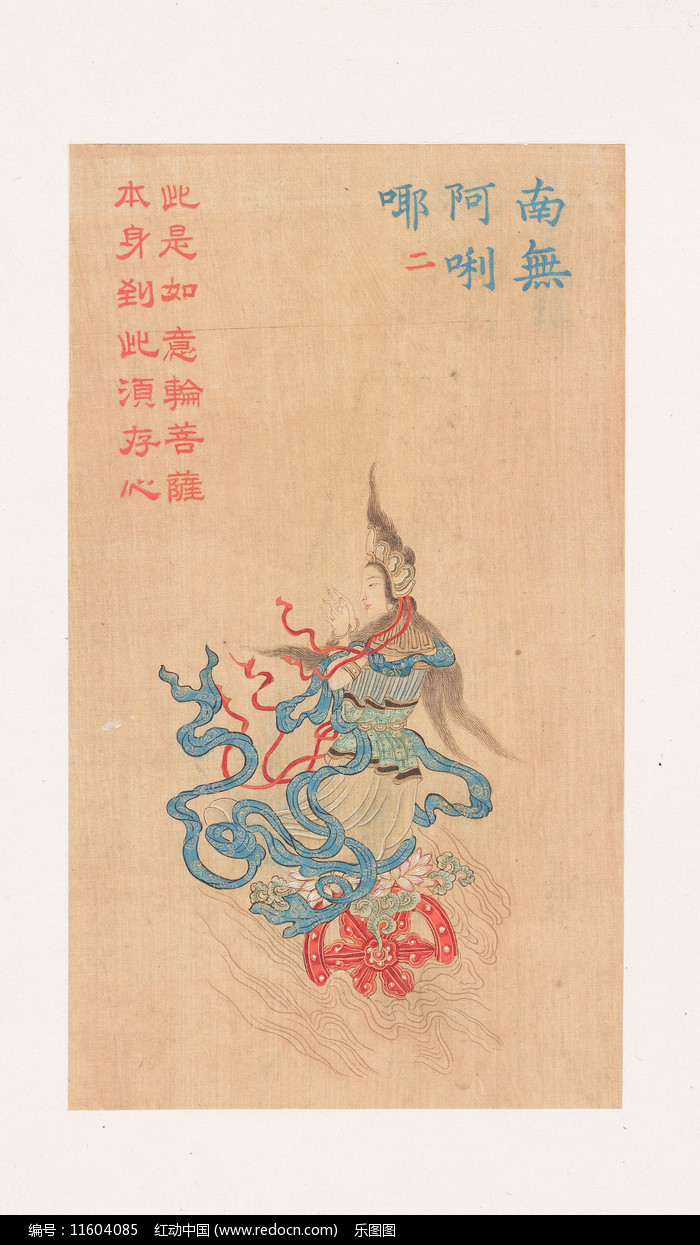 南無
阿唎
耶
二
此是如意輪菩薩
本身到此須存心
编号：11604085 红动中国 (www.redocn.com) 乐图图